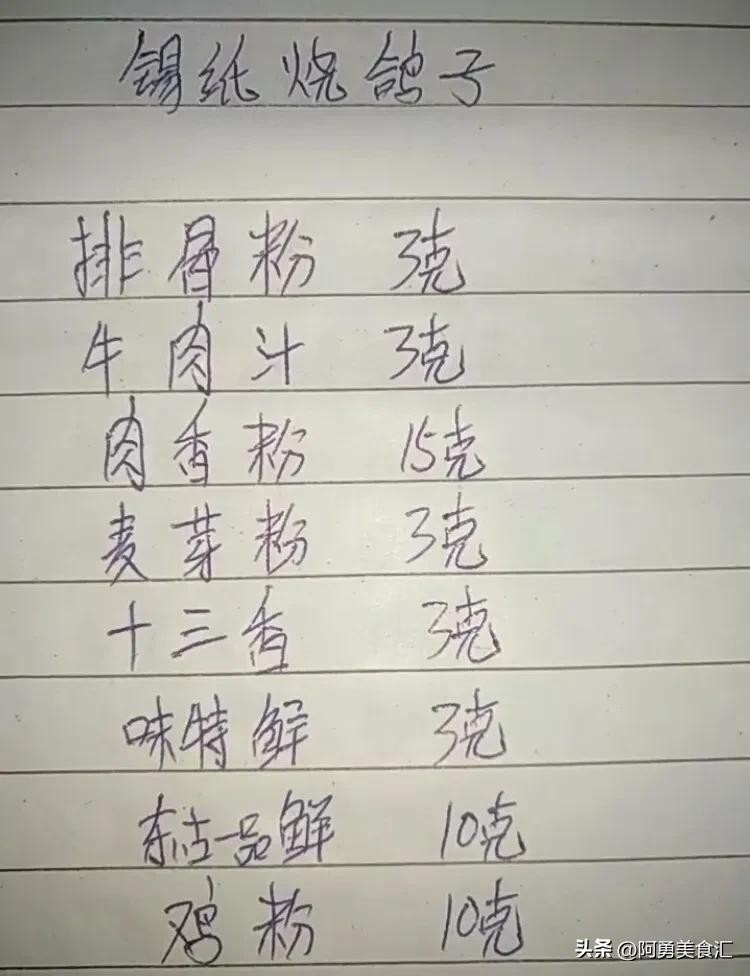 锡纸烧鸽子
排骨粉 3克
牛肉汁 3克
肉香粉 15克
麦芽粉 3克
十三香 3克
味特鲜 3克
东古一品鲜 10克
鸡粉 10克
头条 @阿勇美食汇